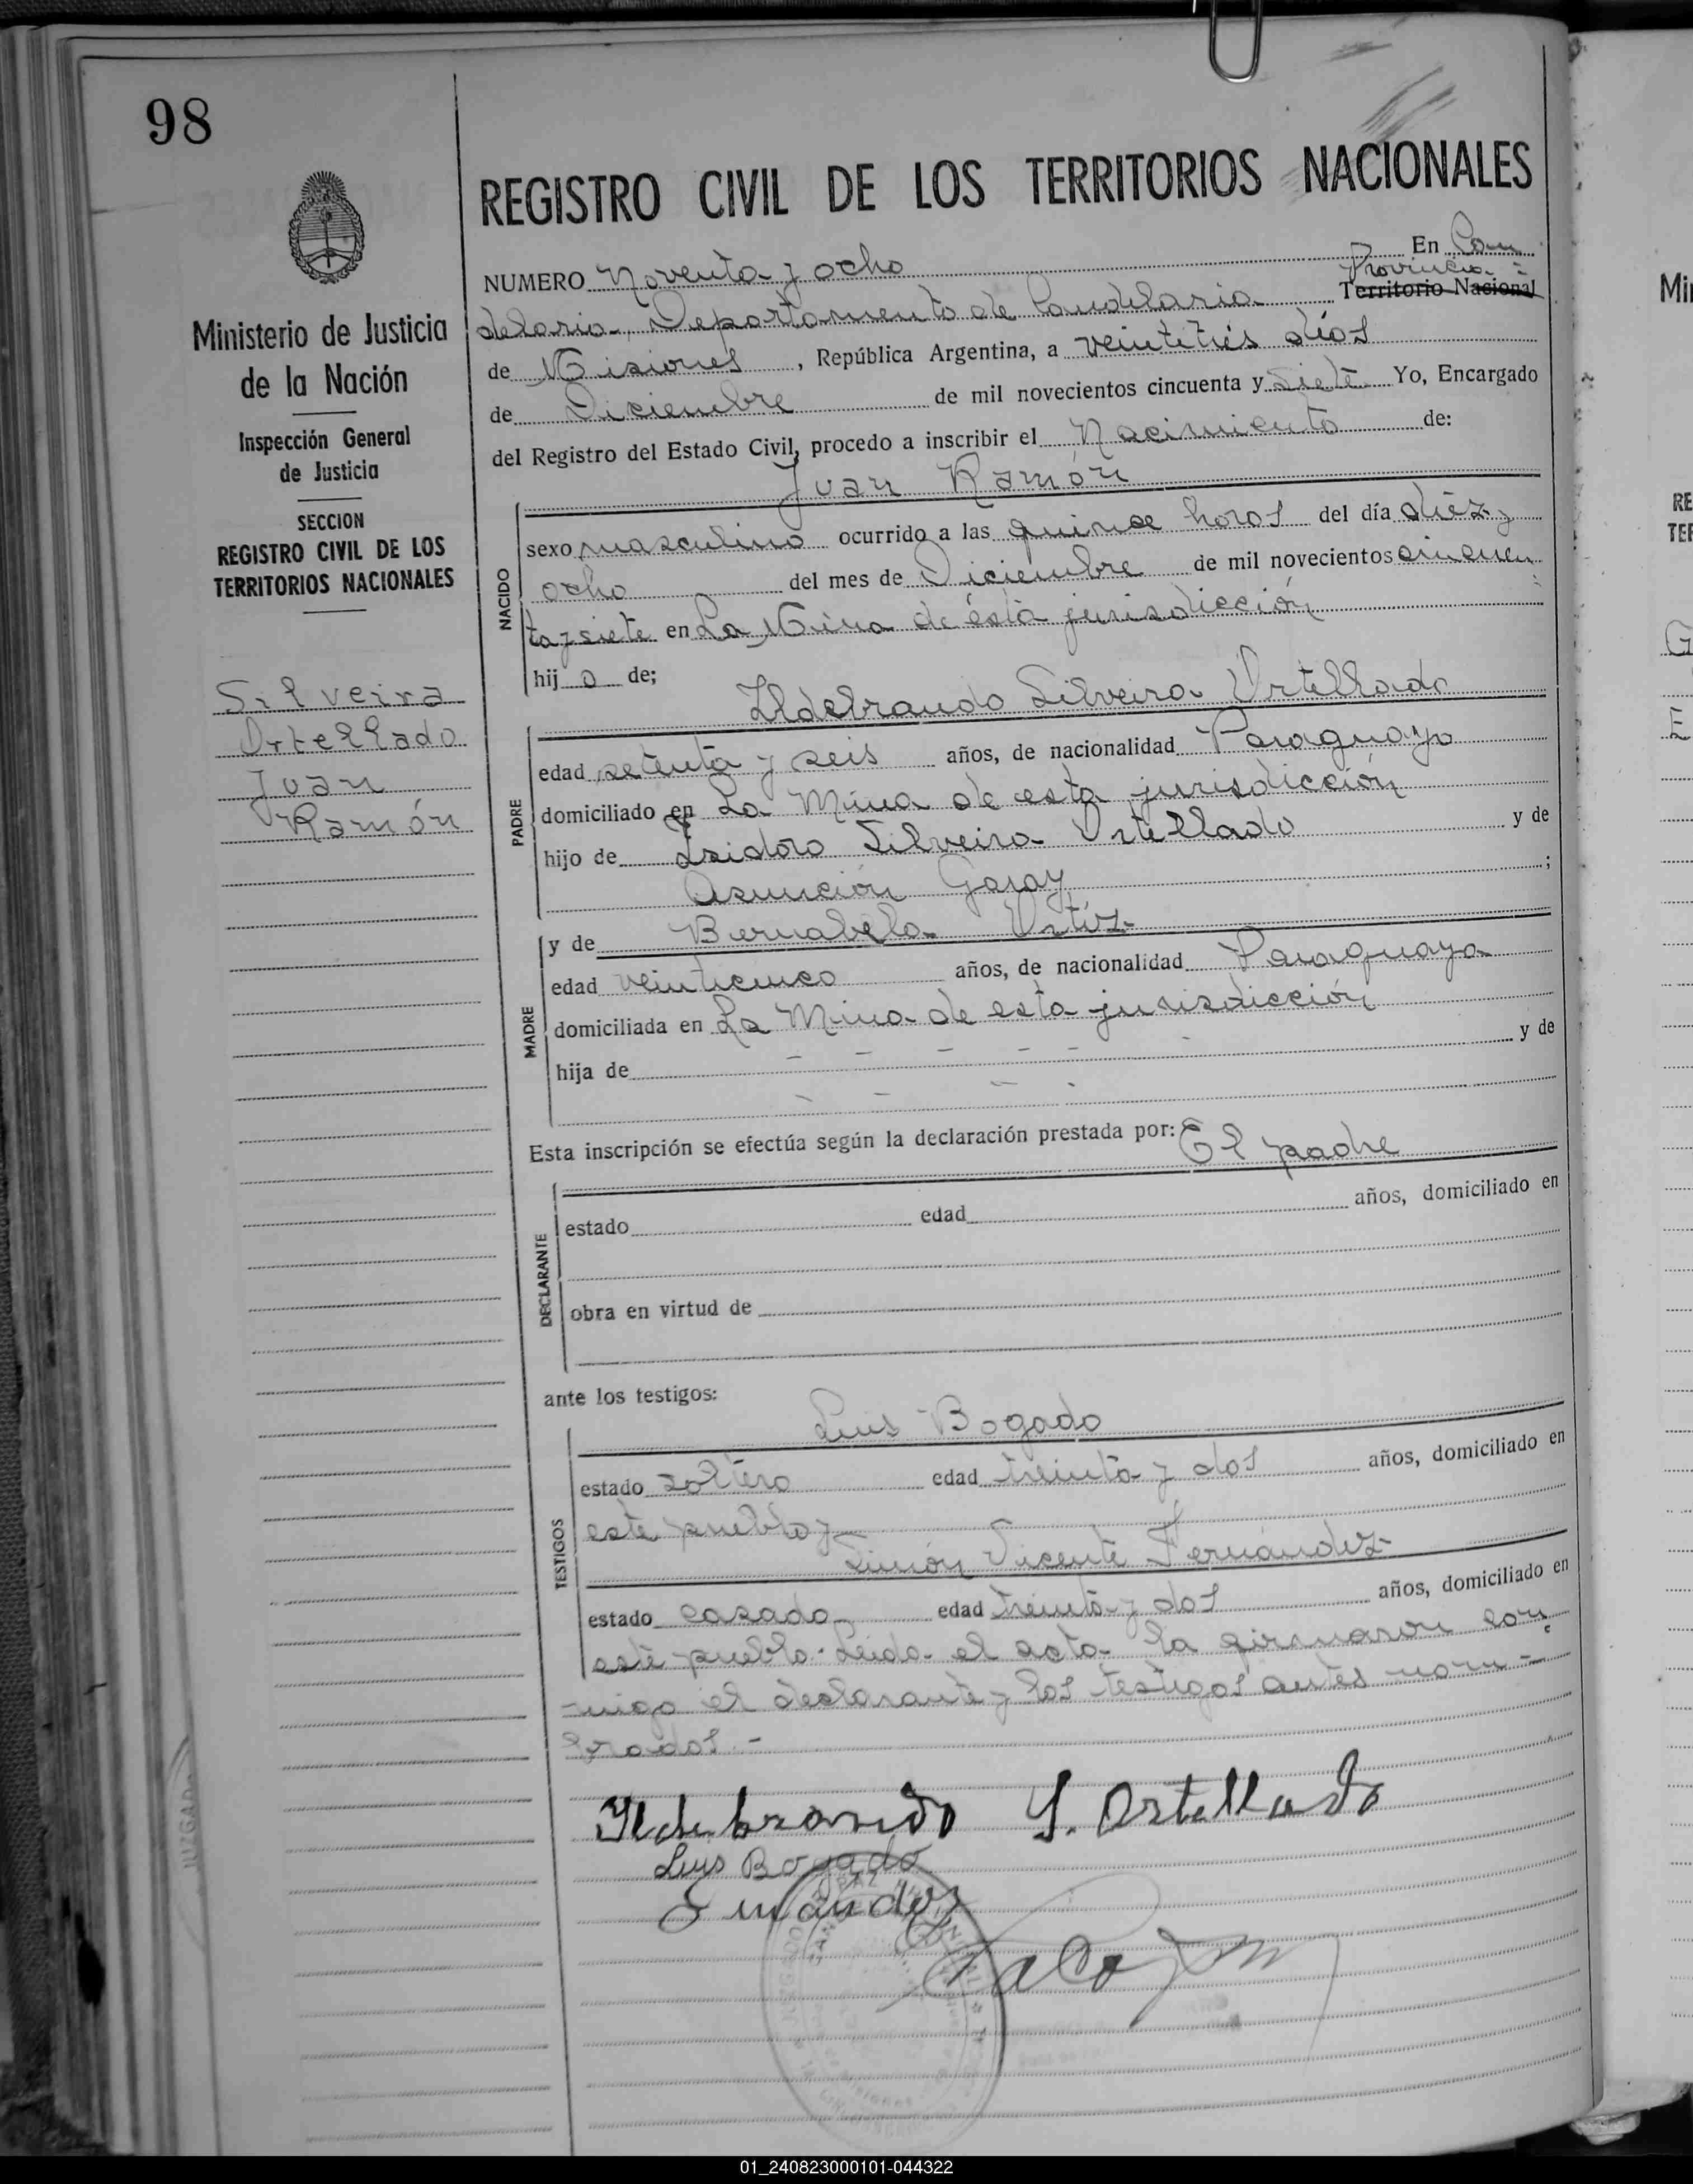 98
REGISTRO CIVIL DE LOS TERRITORIOS NACIONALES
NUMERO Noventa y ocho En Can
Provincia =
delaria, Departamento de Candelaria Territorio Nacional
de Misiones, República Argentina, a veintitrés días
de Diciembre de mil novecientos cincuenta y siete Yo, Encargado
del Registro del Estado Civil, procedo a inscribir el Nacimiento de:
Juan Ramón
NACIDO
sexo masculino ocurrido a las quince horas del día diéz y
ocho del mes de Diciembre de mil novecientos cincuen
ta y siete en La Mina de ésta jurisdicción
hij o de;
Ildebrando Silveira Ortellado
PADRE
edad setenta y seis años, de nacionalidad Paraguayo
domiciliado en La Mina de esta jurisdicción
hijo de Isidoro Silveira Ortellado y de
Asunción Garay ;
y de Bernabela Ortíz
MADRE
edad veinticinco años, de nacionalidad Paraguaya
domiciliada en La Mina de esta jurisdicción
hija de - - - - - y de
- - - -
Esta inscripción se efectúa según la declaración prestada por: El padre
DECLARANTE
estado edad años, domiciliado en
obra en virtud de
ante los testigos:
Luis Bogado
TESTIGOS
estado soltero edad treinta y dos años, domiciliado en
este pueblo y
Simón Vicente Fernández
estado casado edad treinta y dos años, domiciliado en
este pueblo. Leida el acta la firmaron con
migo el declarante y los testigos antes nom-
brados.-
Ildebrando S. Ortellado
Luis Bogado
Ministerio de Justicia
de la Nación
Inspección General
de Justicia
SECCION
REGISTRO CIVIL DE LOS
TERRITORIOS NACIONALES
Silveira
Ortellado
Juan
Ramón
JUZGADO
Mi
RE
TER
G
E
01_240823000101-044322